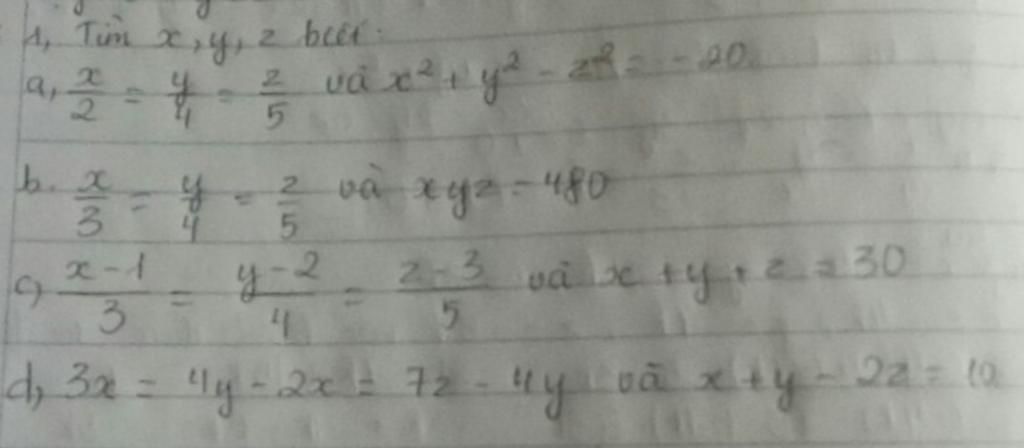 1, Tìm x, y, z biết:
a, x/2 = y/4 = z/5 và x² + y² - z² = -20
b. x/3 = y/4 = z/5 và xyz = 480
c) x-1/3 = y-2/4 = z-3/5 và x + y + z = 30
d, 3x = 4y - 2x = 7z - 4y và x + y - 2z = 10